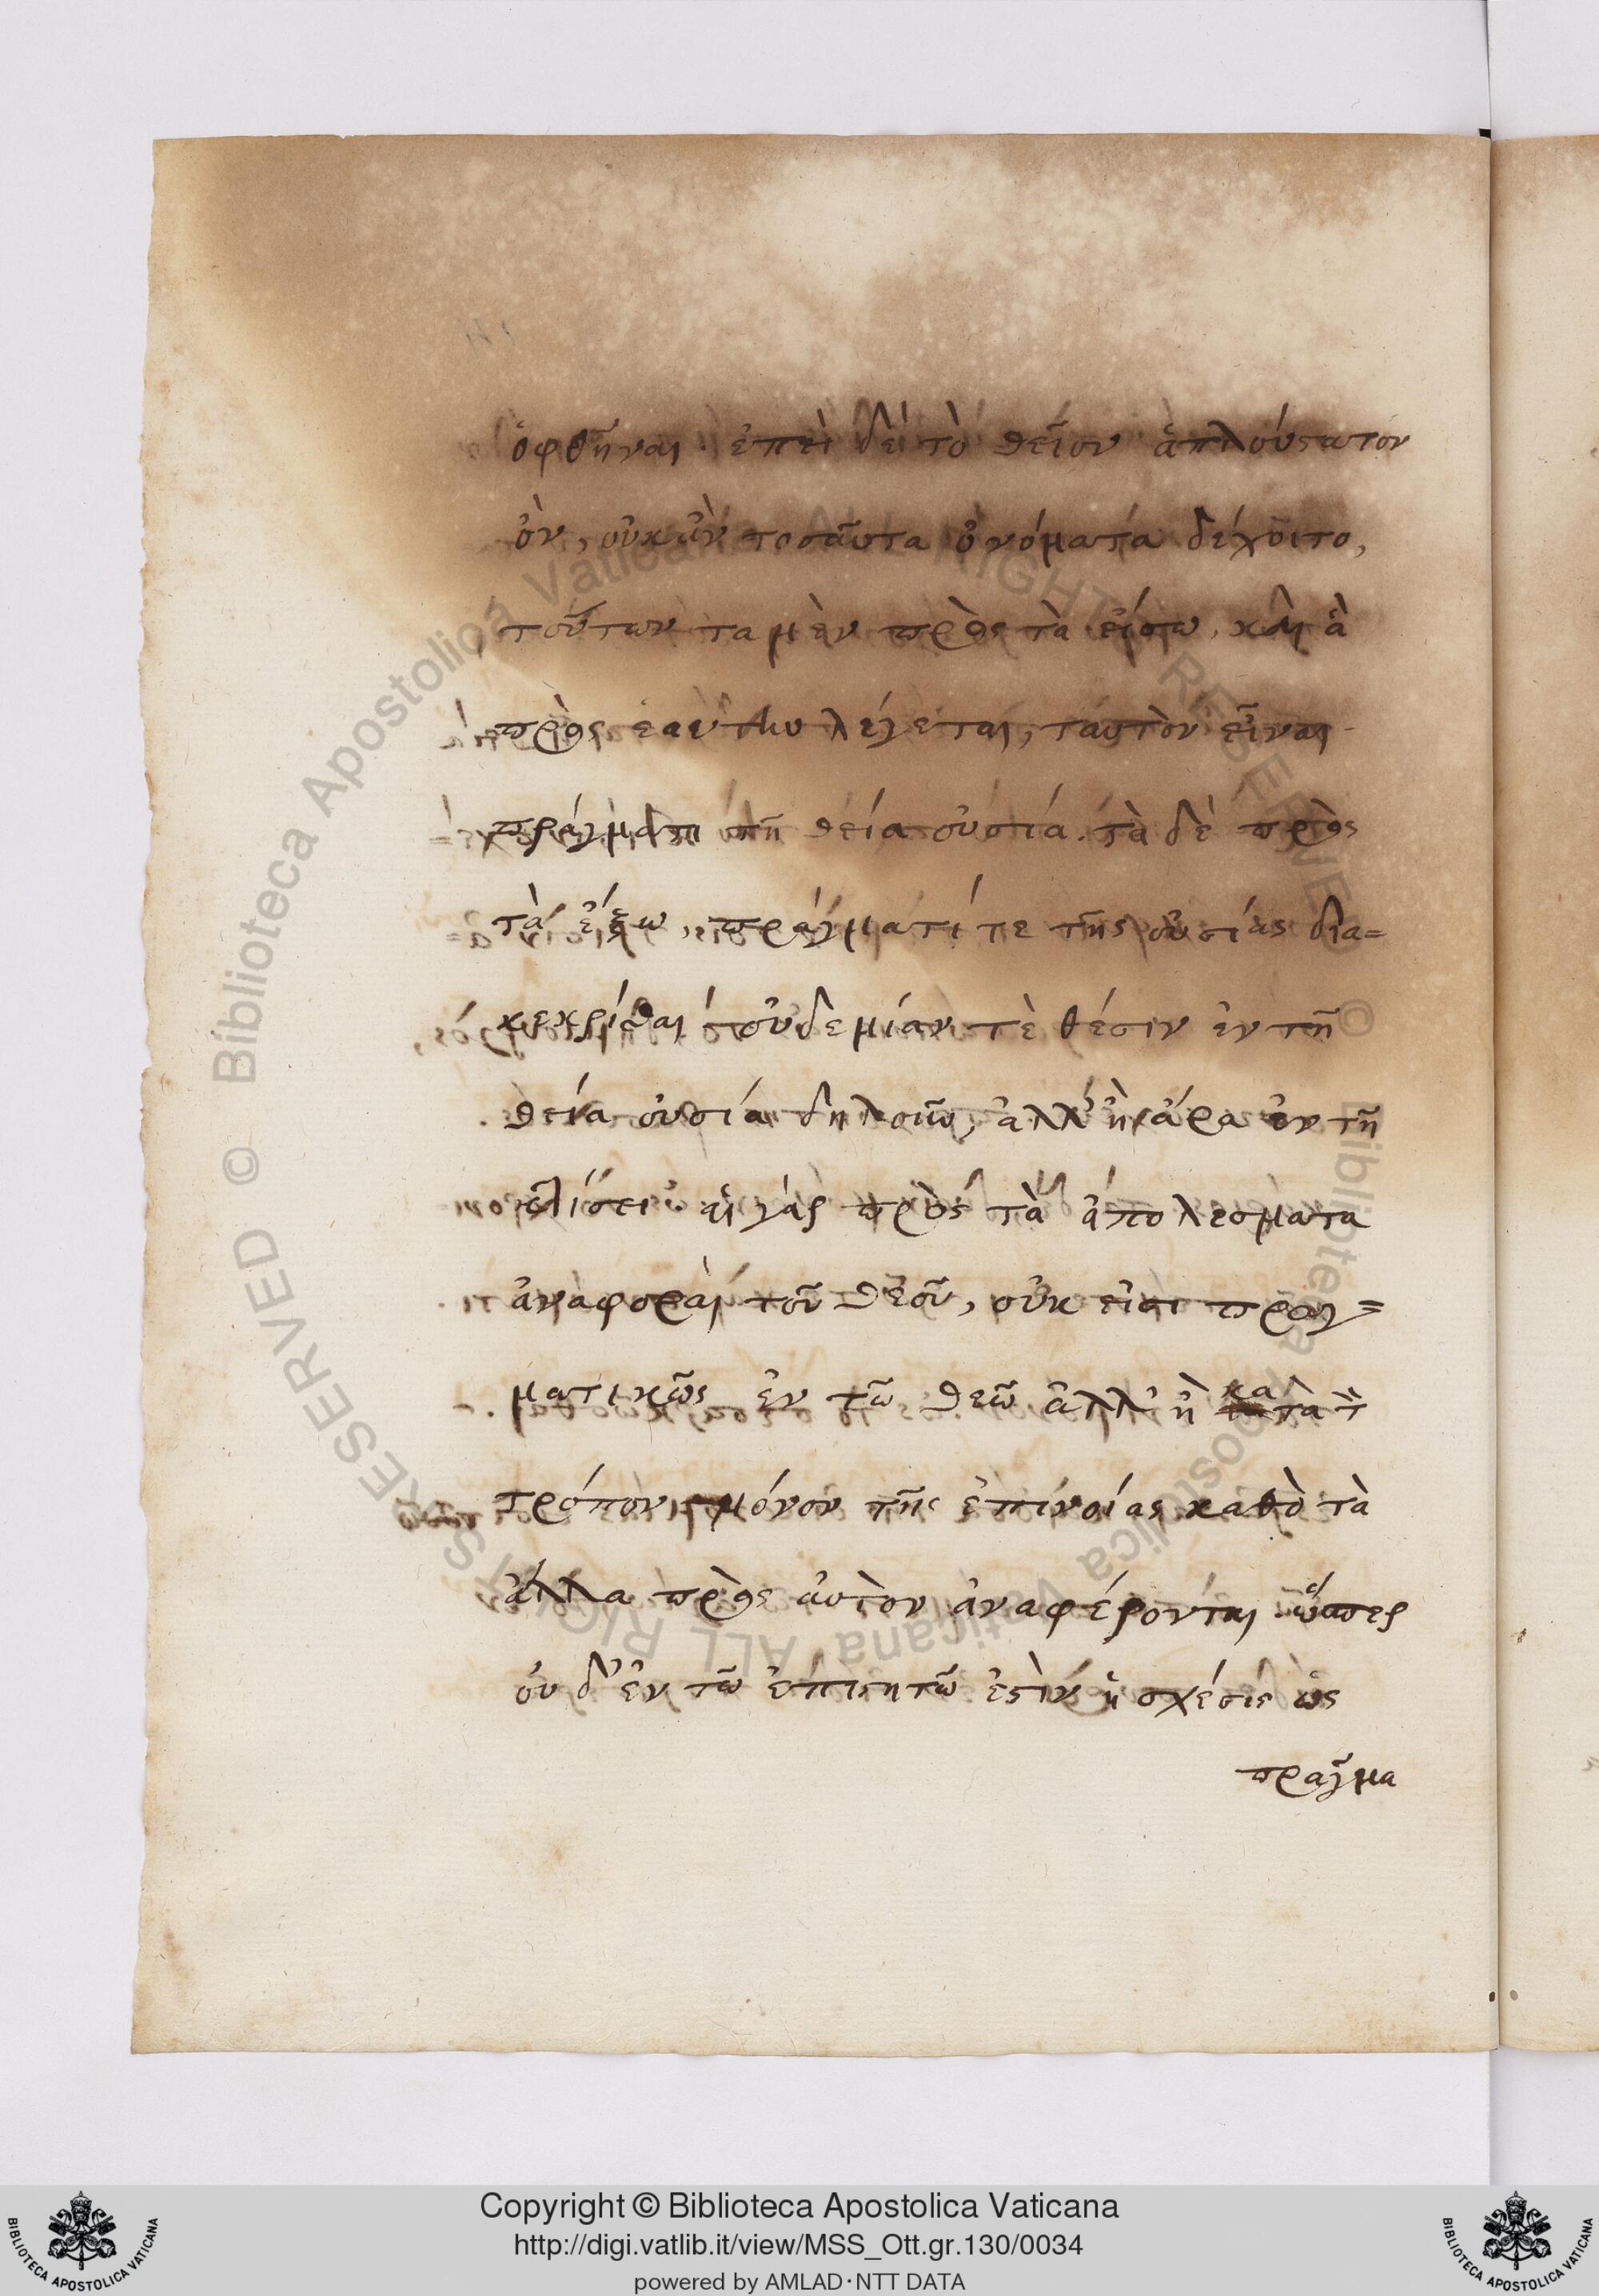 ὀφθῆναι. ἐπεὶ δὲ τὸ θεῖον ἁπλούστατον
ὂν, οὐκ ἂν τοσαῦτα ὀνόματα δέχοιτο,
τούτων τα μὲν πρὸς τὰ εἴσω, καὶ ἃ
πρὸς ἑαυτὴν λέγεται, ταυτὸν εἶναι
πράγματι τῆ θεία οὐσία. τὰ δὲ πρὸς
τὰ ἔξω, πράγματί τε τῆς οὐσίας δια=
κεκρίσθαι οὐδεμίαν τὲ θέσιν ἐν τῆ
θεία οὐσία δηλοῦν, ἀλλ' ἢ ἄρα ἐν τῆ
κτίσει αἱ γὰρ πρὸς τὰ ἀποτελέσματα
ἀναφοραὶ τοῦ θεοῦ, οὐκ εἰσι πραγ=
ματικῶς ἐν τῶ θεῶ ἀλλ' ἢ κατὰ τ̀
τρόπον μόνον τῆς ἐπινοίας καθὸ τὰ
ἄλλα πρὸς ἀυτὸν ἀναφέρονται ὥσπερ
ὀυδ' ἐν τῶ ἐπιστητῶ ἐστὶν ἡ σχέσις ὡς
πρᾶγμα
Copyright © Biblioteca Apostolica Vaticana
http://digi.vatlib.it/view/MSS_Ott.gr.130/0034
powered by AMLAD·NTT DATA
BIBLIOTECA APOSTOLICA VATICANA
BIBLIOTECA APOSTOLICA VATICANA
© Biblioteca Apostolica Vaticana ALL RIGHTS RESERVED © Biblioteca Apostolica Vaticana ALL RIGHTS RESERVED